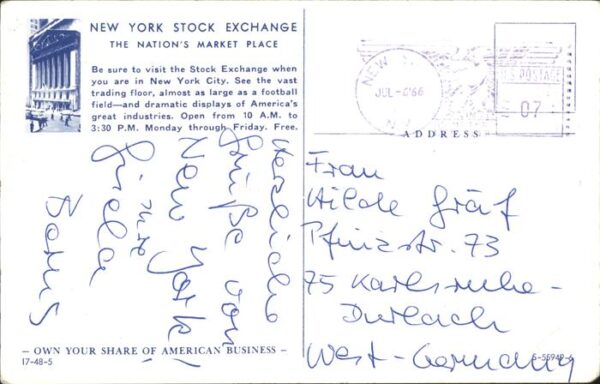 NEW YORK STOCK EXCHANGE
THE NATION'S MARKET PLACE
Be sure to visit the Stock Exchange when
you are in New York City. See the vast
trading floor, almost as large as a football
field—and dramatic displays of America's
great industries. Open from 10 A.M. to
3:30 P.M. Monday through Friday. Free.
Herzliche
Grüße von
New York!
Ihre
Gisela
— OWN YOUR SHARE OF AMERICAN BUSINESS —
17-48-5
NEW
JUL '66
N.Y.
U.S. POSTAGE
07
ADDRESS
Frau
Hilde Gräf
Pfinzstr. 73
75 Karlsruhe-
Durlach
West-Germany